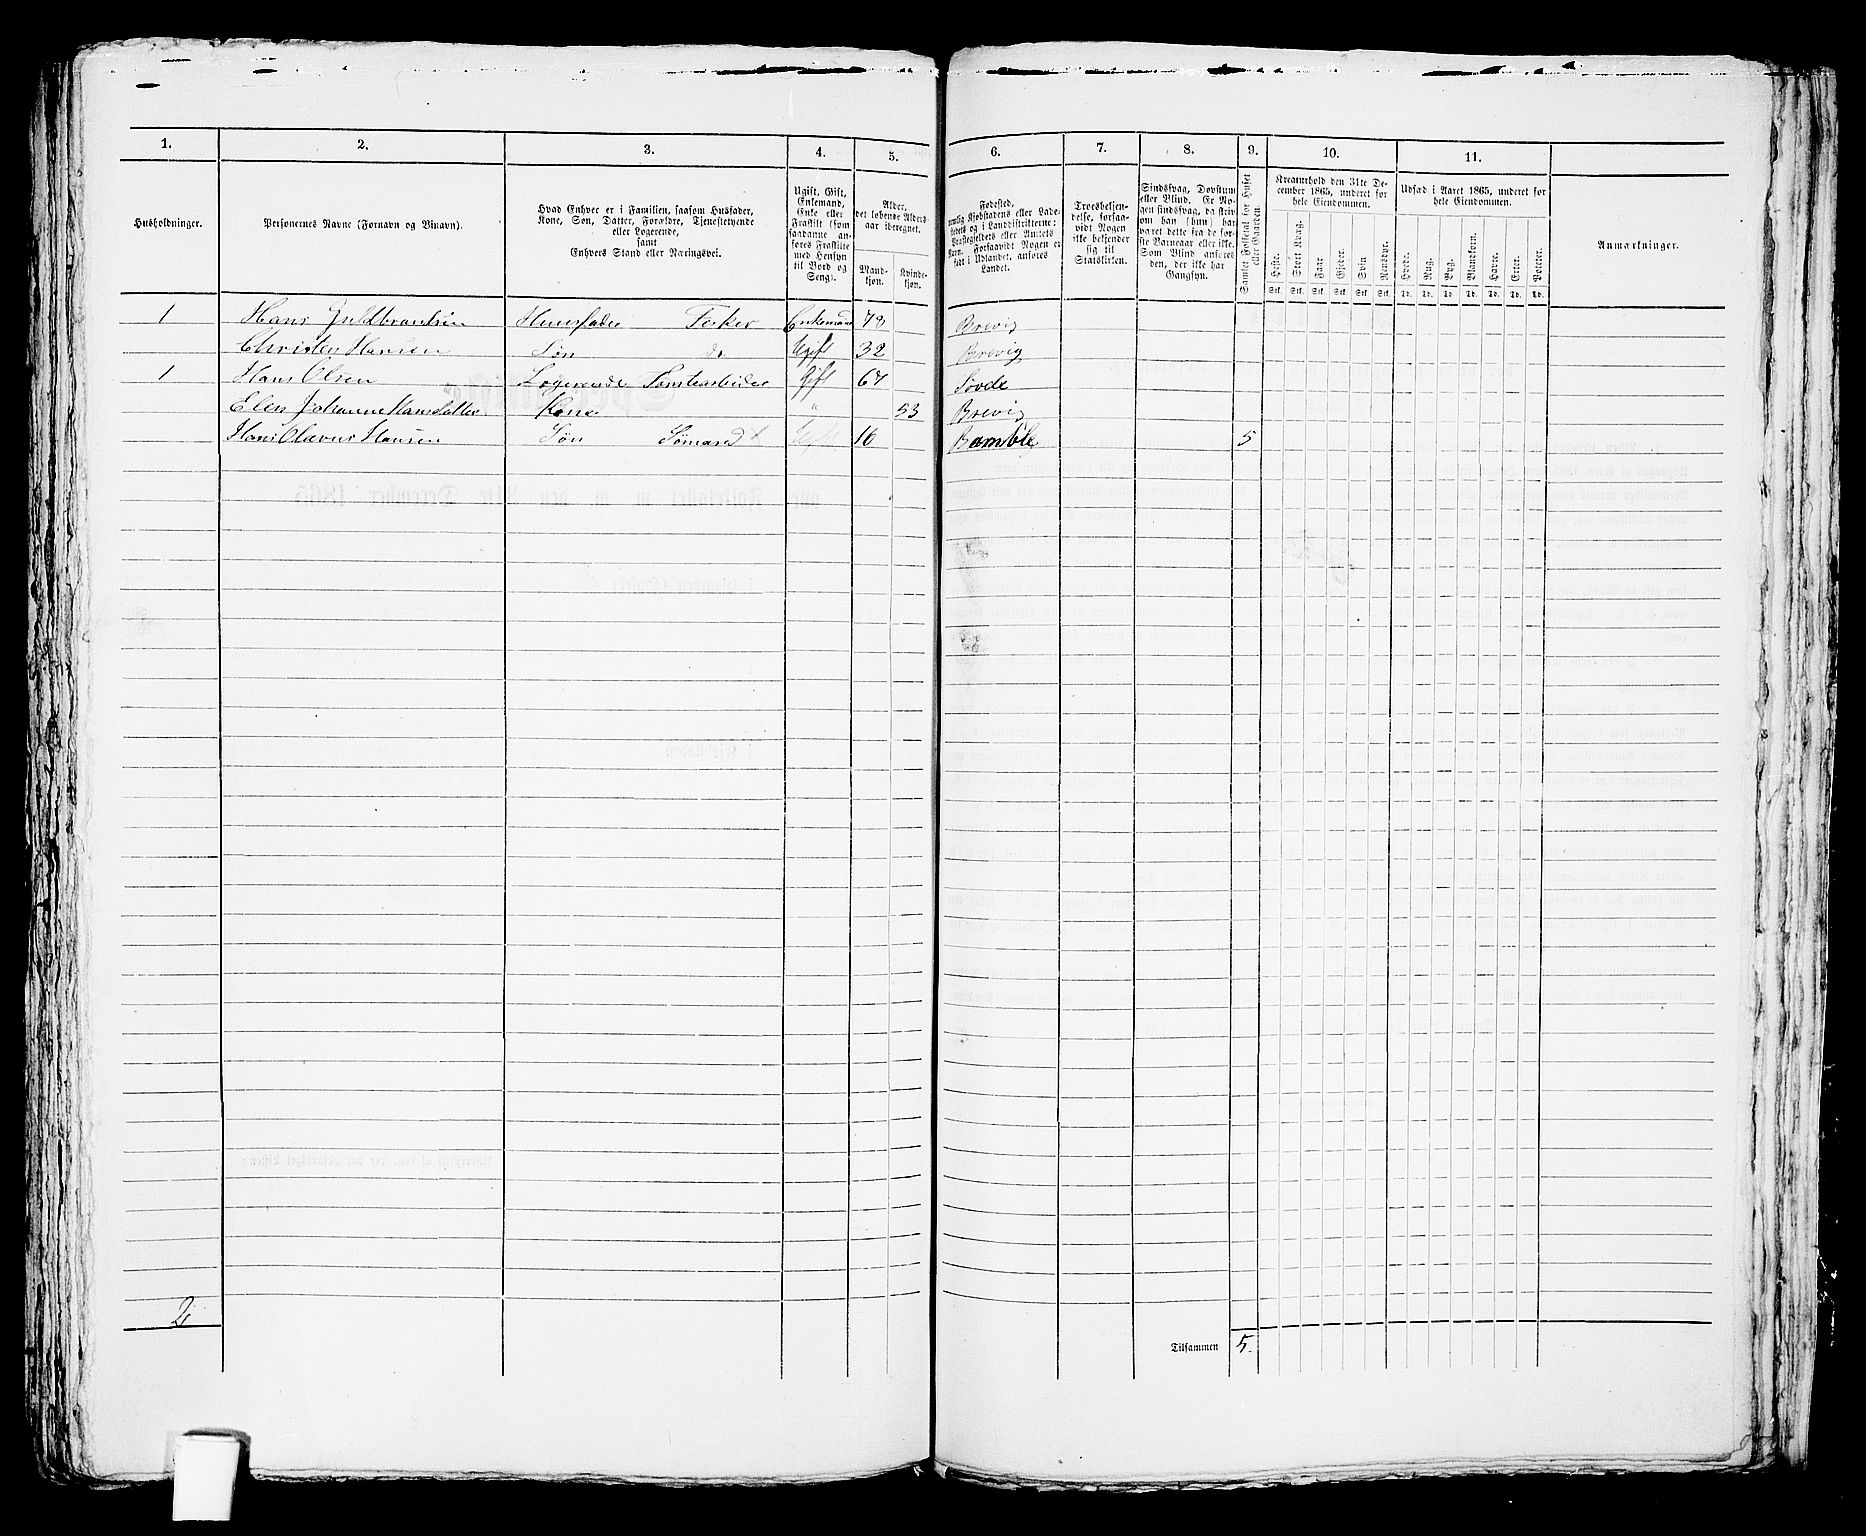 1. 2. 3. 4. 5. 6. 7. 8. 9. 10. 11.
Husholdninger.
Personernes Navne (Fornavn og Binavn).
Hvad Enhver er i Familien, saasom Husfader,
Kone, Søn, Datter, Forældre, Tjenestetyende
eller Logerende,
samt
Enhvers Stand eller Næringsvei.
Ugift, Gift,
Enkemand,
Enke eller
Fraskilt (som
saadanne an-
føres Fraskilte
med Hensyn
til Bord og
Seng).
Alder,
det løbende Alders-
aar iberegnet.
Mand-
kjøn.
Kvinde-
kjøn.
Fødested,
nemlig Kjøbstadens eller Lade-
stedets og i Landdistrikterne:
Præstegjeldets eller Annexets
Navn. Forsaavidt Nogen er
født i Udlandet, anføres
Landet.
Troesbekjen-
delse, forsaa-
vidt Nogen
ikke bekjender
sig til
Statskirken.
Sindssvag, Døvstum
eller Blind. Er No-
gen sindssvag, da skriv
om han (hun) har
været dette fra de før-
ste Barneaar eller ikke.
Som Blind anføres
den, der ikke har
Gangsyn.
Samlet Folketal for Huset
eller Gaarden.
Kreaturhold den 31te De-
cember 1865, underet for
hele Eiendommen.
Heste. Stort Kvæg. Faar. Gjeder. Svin Rensdyr.
Stk. Stk. Stk. Stk. Stk. Stk.
Udsæd i Aaret 1865, underet for
hele Eiendommen.
Hvede. Rug. Byg. Blandkorn. Havre. Erter. Poteter.
Td. Td. Td. Td. Td. Td. Td.
Anmærkninger.
1 Hans Guldbrantsen Huusfader Fisker Enkemand 78 Brevig
Christen Hansen Søn do Ugift 32 Brevig
1 Hans Olsen Logerende Gift 67 Søvde
Elen Johanne Hansdatter Kone " 53 Brevig
Hans Olavus Hansen Søn Sømand Ugift 16 Bamble 5
2
Tilsammen 5